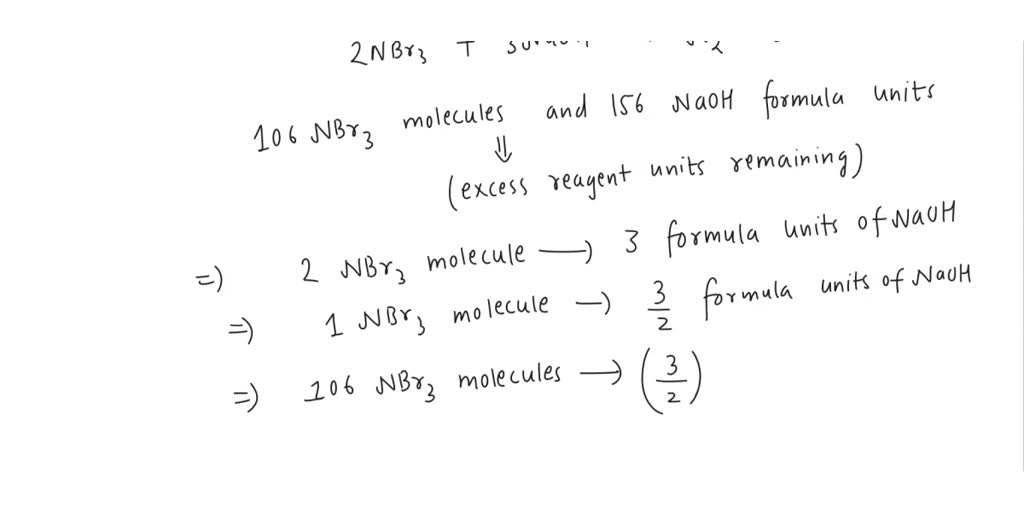 2NBr₃ +
106 NBr₃ molecules and 156 NaOH formula units
⇓
(excess reagent units remaining)
=) 2 NBr₃ molecule → 3 formula units of NaOH
=) 1 NBr₃ molecule → 3/2 formula units of NaOH
=) 106 NBr₃ molecules → (3/2)